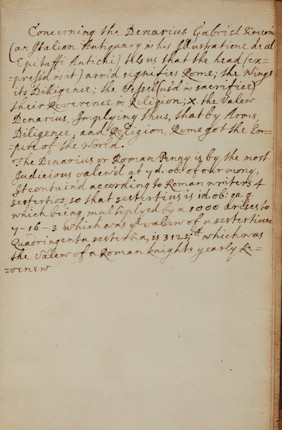 Concerning the Denarius Gabriel Simeoni
(an Italian Antiquary in his Illustratione de al
Epitaffi Antichi) tells us that the head (ex=
=press'd in it) arm'd signifies Rome; the Wings
its Diligence; the Vessel (us'd in sacrifice)
their Reverence in Religion; X the Valew
Denarius, Implying thus, that by Arms,
Diligence, and Religion, Rome got the Em=
=pire of the World.
The Denarius or Roman Penny is by the most
Judicious valew'd at 7 d. ob. of our mony,
It containd according to Roman writers 4
sestertios, so that sestertius is id. ob: qa. q
which being multiplyed by a 1000 arises to
7-16-3 which was ye valew of a sestertium
Quadringenta sestertia, is 3125 which was
the Valew of a Roman Knights yearly Re=
=venew